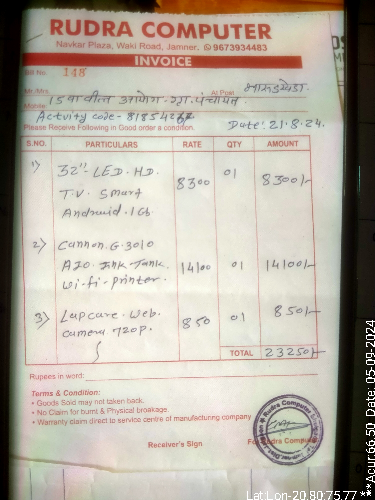 RUDRA COMPUTER
Navkar Plaza, Waki Road, Jamner. 9673934483
INVOICE
Bill No. 148
Mr./Mrs. At Post
15 वा वित्त आयोग - ग्रा. पंचायत
Mobile
Activity code - 8185
Please Receive Following in Good order a condition. Date: 21.8.24.
S.NO. PARTICULARS RATE QTY AMOUNT
1) 32" LED. HD. 8300 01 8300/-
T.V. Smart
Android. 1Gb
2) Cannon. G. 3010
AIO. Ink-Tank. 14100 01 14100/-
Wi-fi-printer.
3) Lapcare. Web. 850 01 850/-
camera. 720p.
TOTAL 23250/-
Rupees in word:
Terms & Condition:
• Goods Sold may not taken back.
• No Claim for burnt & Physical breakage
• Warranty claim direct to service centre of manufacturing company
Receiver's Sign For Rudra Computer
Rudra Computer
Lat Lon-20.80:75.77
Acur:66.50 Date: 05-09-2024